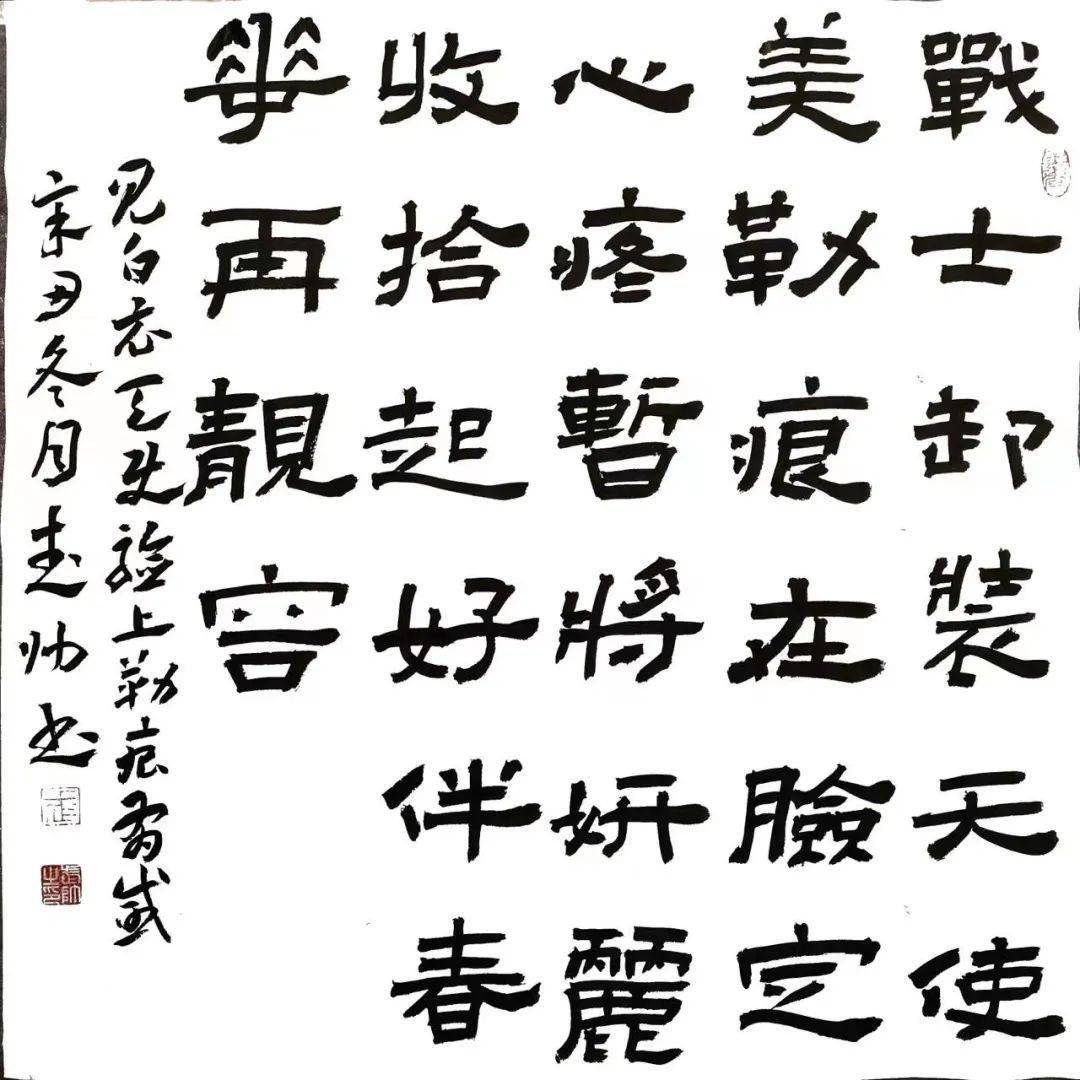 戰士卸裝天使
美勒痕在臉定
心疼暫將妍麗
收拾起好伴春
華再靚容
见白衣天使脸上勒痕感
辛丑冬月帅书